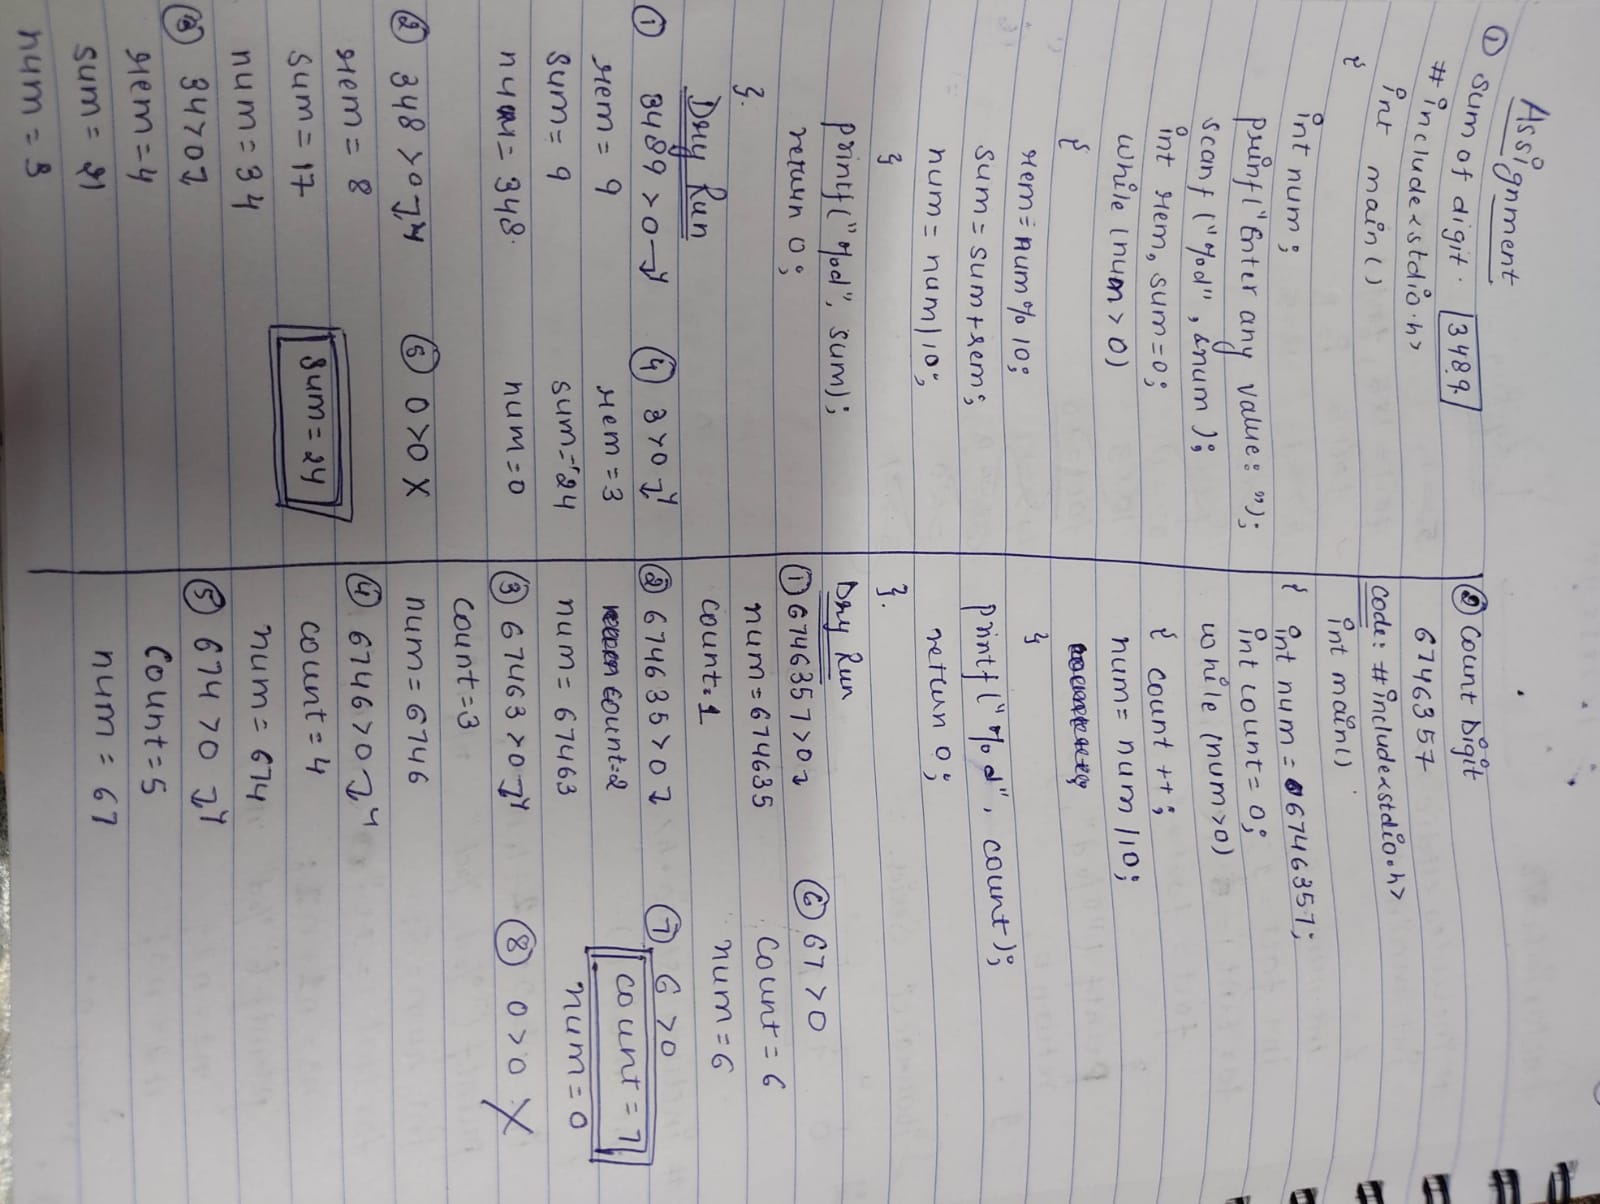 Assignment
① Sum of digit. 3489
#include<stdio.h>
int main()
{
int num;
printf("Enter any value: ");
scanf("%d", &num);
int rem, sum=0;
while (num>0)
{
rem=num%10;
sum=sum+rem;
num=num/10;
}
printf("%d", sum);
return 0;
}.
Dry Run
① 3489>0
rem=9
sum=9
num=348.
② 348>0
rem=8
sum=17
num=34
③ 34>0
rem=4
sum=21
num=3
④ 3>0
rem=3
sum=24
num=0
⑤ 0>0 X
Sum=24
② Count Digit
6746357
Code: #include<stdio.h>
int main()
{ int num=6746357;
int count=0;
while (num>0)
{ count++;
num=num/10;
}
printf("%d", count);
return 0;
}.
Dry Run
① 6746357>0
num=674635
count=1
② 674635>0
count=2
num=67463
③ 67463>0
count=3
num=6746
④ 6746>0
count=4
num=674
⑤ 674>0
Count=5
num=67
⑥ 67>0
Count=6
num=6
⑦ 6>0
count=7
num=0
⑧ 0>0 X